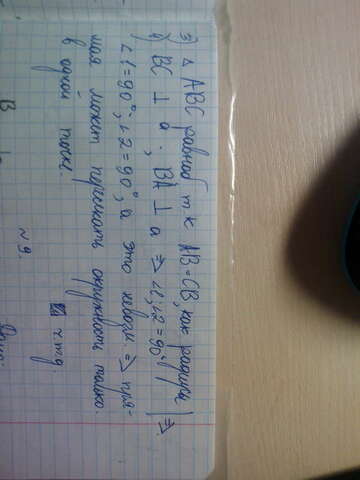 3) △ ABC равноб т к AB=CB, как радиусы | ⇒
4) BC ⊥ a ; BA ⊥ a ⇒ ∠1, ∠2 = 90° |
∠1=90°; ∠2=90°, а это невозм. ⇒ пря-
мая может пересекать окружность только
в одной точке.
ч т д
№ 9
B